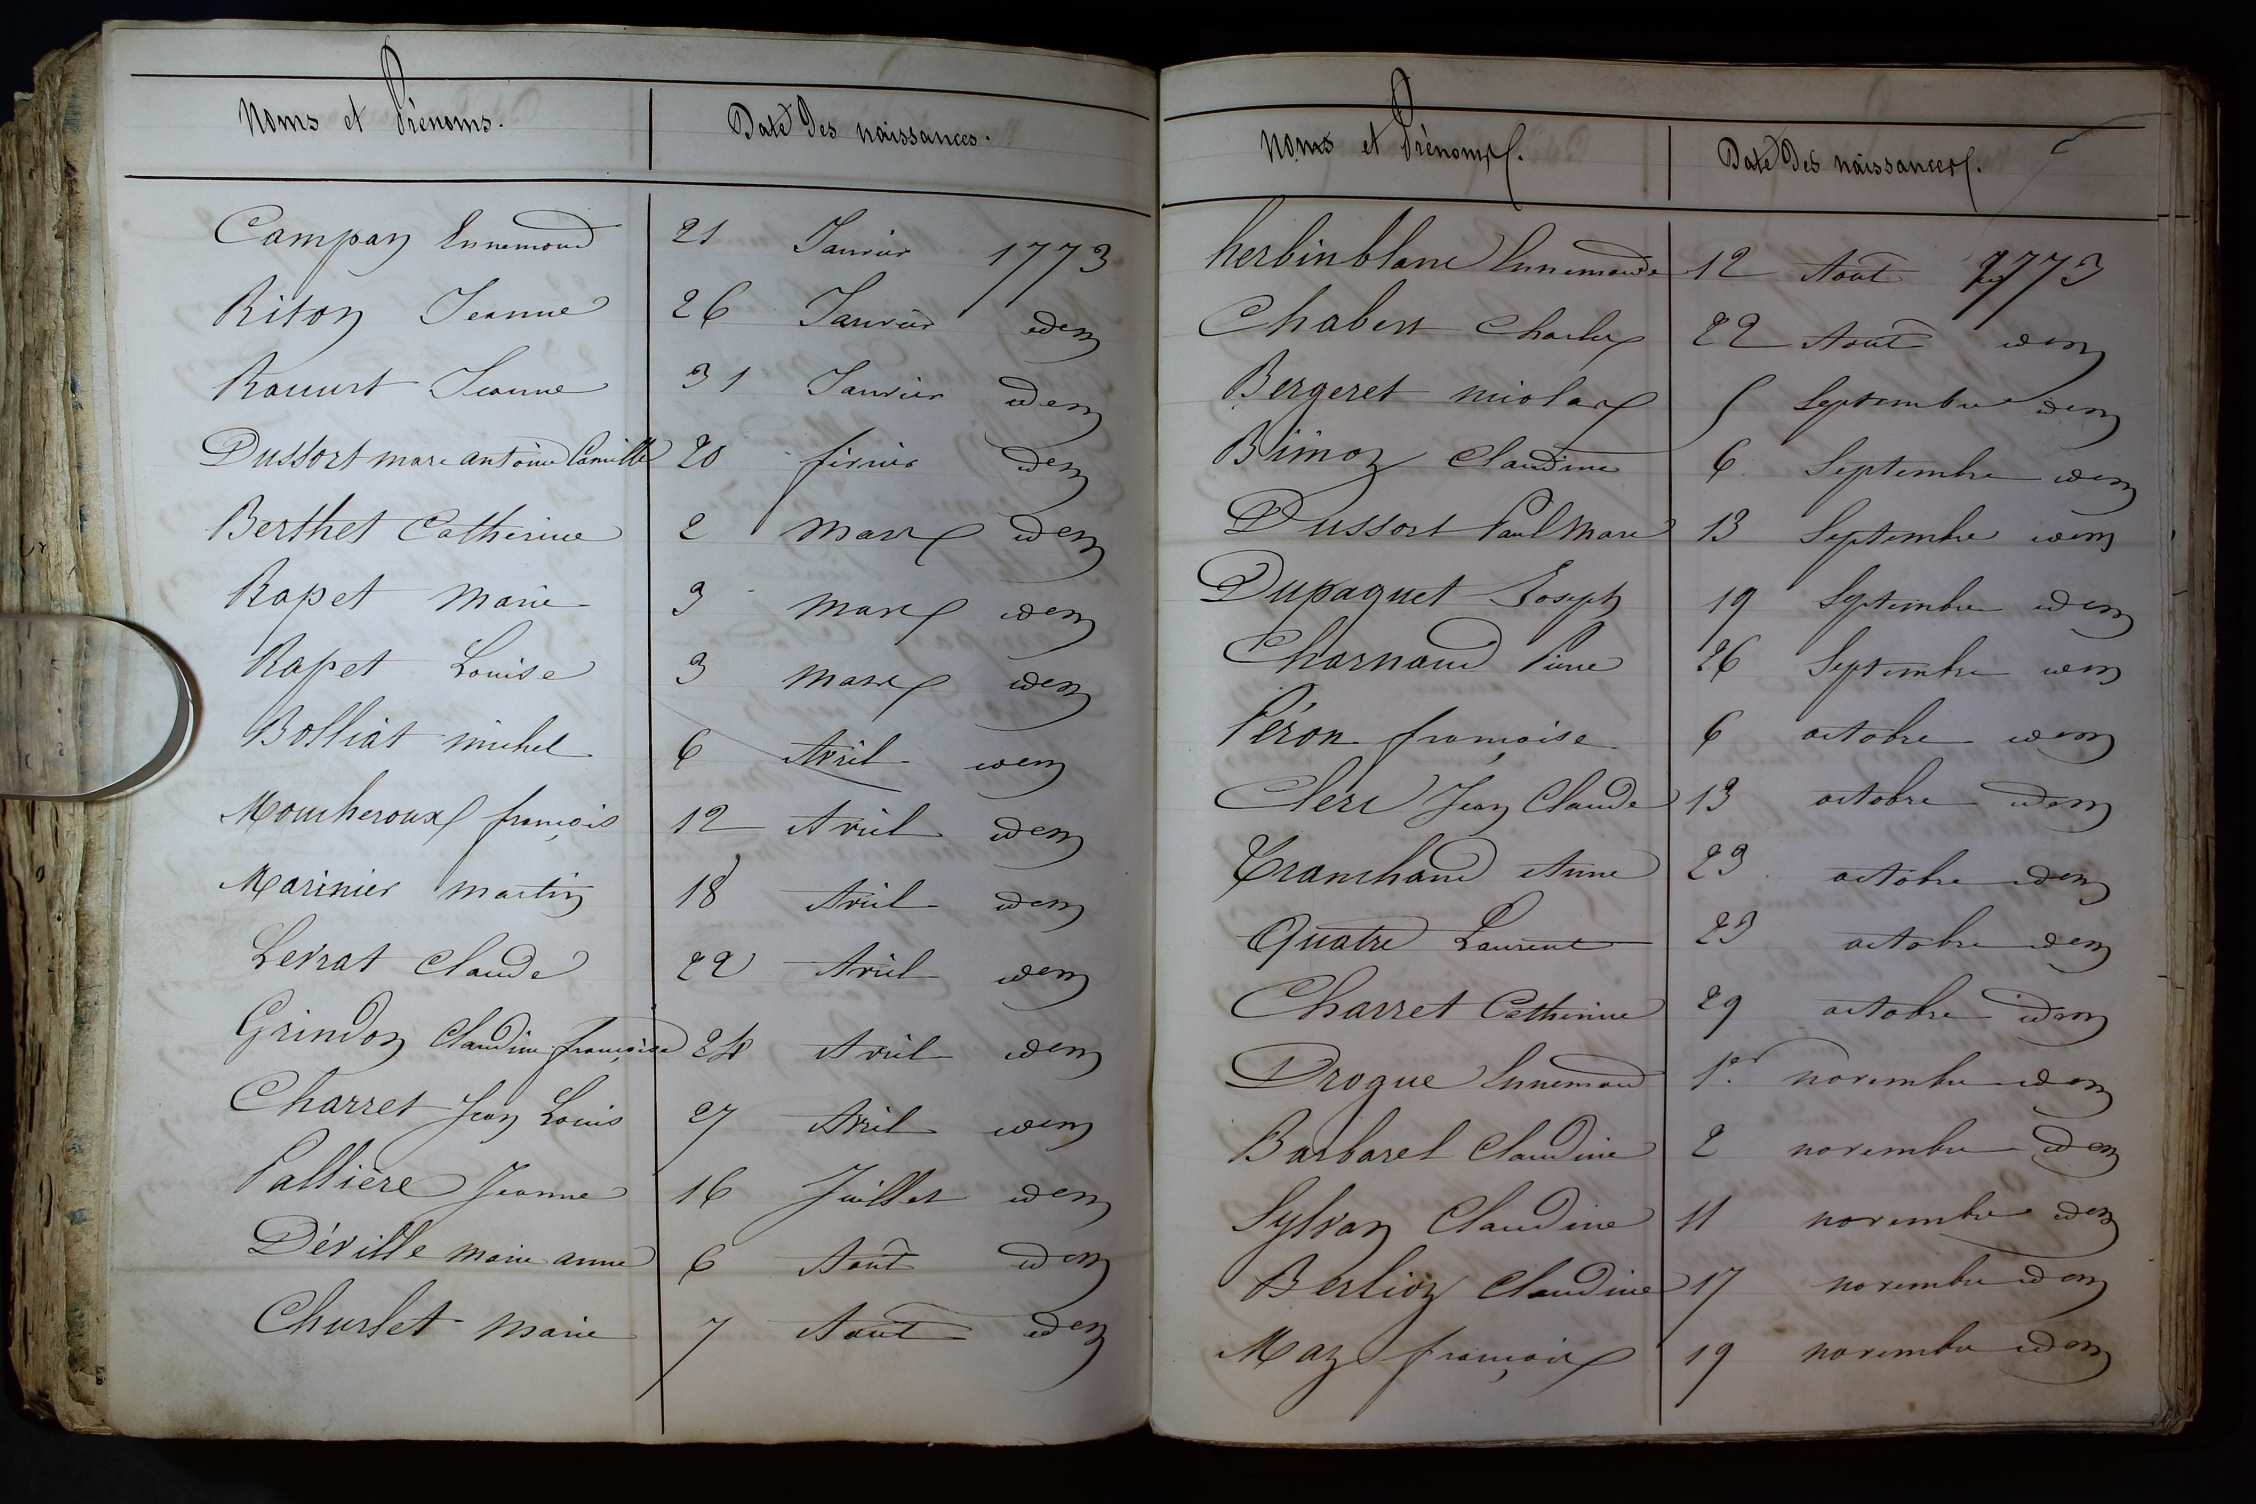 Noms et Prénoms. Date des naissances.
Campan Ennemond 21 Janvier 1773
Riton Jeanne 26 Janvier idem
Jeanne 31 Janvier idem
Dussort marc antoine Camille 20 février idem
Berthet Catherine 2 mars idem
Rapet marie 3 mars idem
Rapet Louise 3 mars idem
Bolliat michel 6 Avril idem
Moucheroux françois 12 Avril idem
Marinier martin 18 Avril idem
Levrat Claude 22 Avril idem
Grindon Claudine françoise 24 Avril idem
Charret Jean Louis 27 Avril idem
Pallière Jeanne 16 Juillet idem
Déville marie anne 6 Aout idem
Churlet marie 7 Aout idem
Noms et Prénoms. Date des naissances.
herbinblanc Ennemonde 12 Aout 1773
Chabert Charles 22 Aout idem
Bergeret nicolas 5 Septembre idem
Claudine 6 Septembre idem
Dussort Paul Marc 13 Septembre idem
Dupaquet Joseph 19 Septembre idem
Charnaud Pierre 26 Septembre idem
Péron françoise 6 octobre idem
Clerc Jean Claude 13 octobre idem
Tranchand Anne 23 octobre idem
Quatre Laurent 23 octobre idem
Charret Catherine 29 octobre idem
Drogue Ennemond 1er novembre idem
Barbarel Claudine 2 novembre idem
Sylvan Claudine 11 novembre idem
Berlioz Claudine 17 novembre idem
Maz françois 19 novembre idem